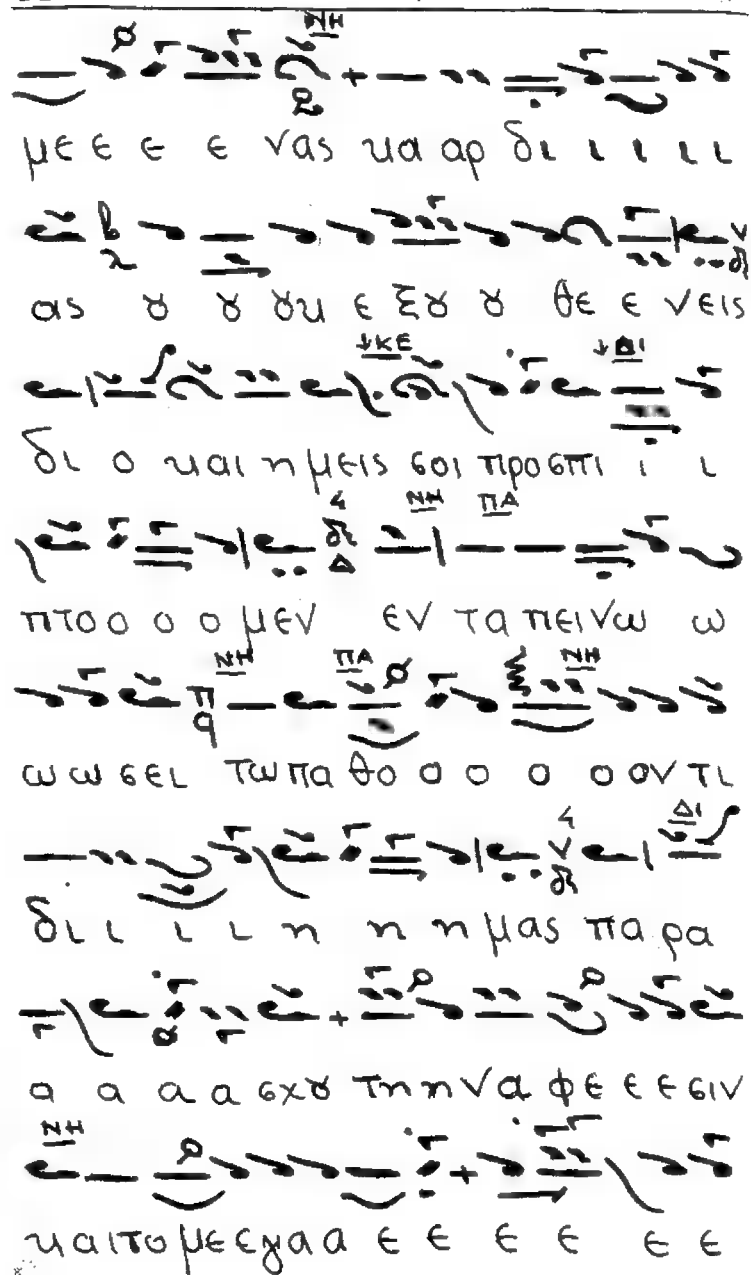 ΝΗ
με ε ε ε νας κα αρ δι ι ι ι ι
ας ȣ ȣ ȣκ ε ξȣ ȣ θε ε νεις
ΚΕ ΔΙ
δι ο και η μεις σοι προσπι ι ι
ΝΗ ΠΑ
πτο ο ο ο μεν εν τα πεινω ω
ΝΗ ΠΑ ΝΗ
ω ω σει τω πα θο ο ο ο ο ον τι
ΔΙ
δι ι ι ι η η η μας πα ρα
α α α α σχȣ τη η να φε ε ε σιν
ΝΗ
και το με ε γα α ε ε ε ε ε ε